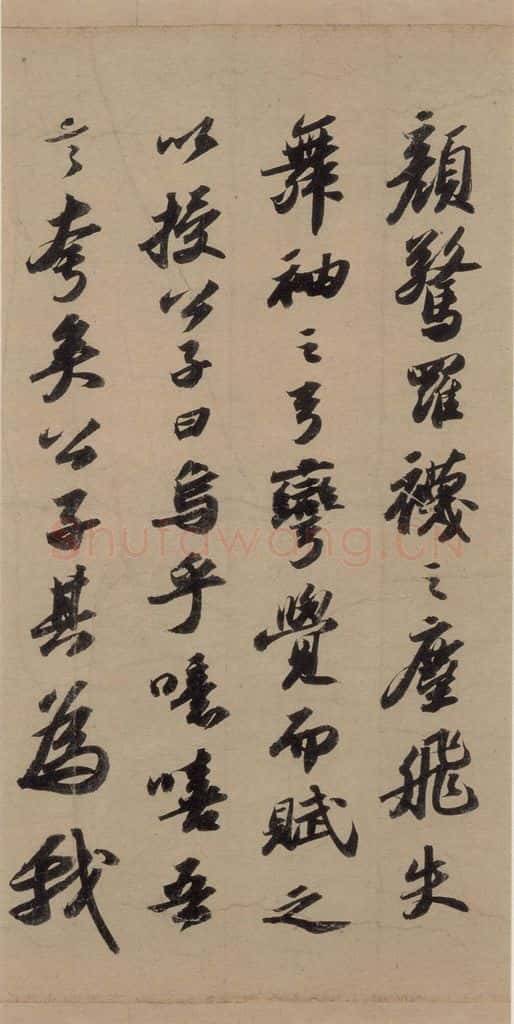 顏驚羅襪之塵飛失
舞袖之弓彎覺而賦之
以授公子曰烏乎噫嘻吾
言夸矣公子其為我
Shufawang.CN